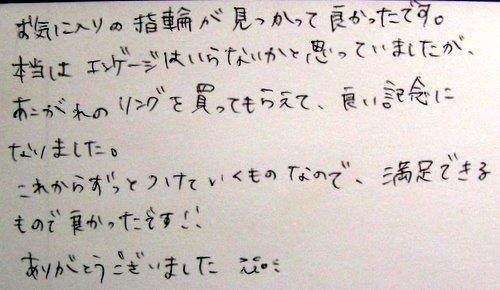 お気に入りの指輪が見つかって良かったです。
本当はエンゲージはいらないかと思っていましたが、
あこがれのリングを買ってもらえて、良い記念に
なりました。
これからずっとつけていくものなので、満足できる
もので良かったです!!
ありがとうございました